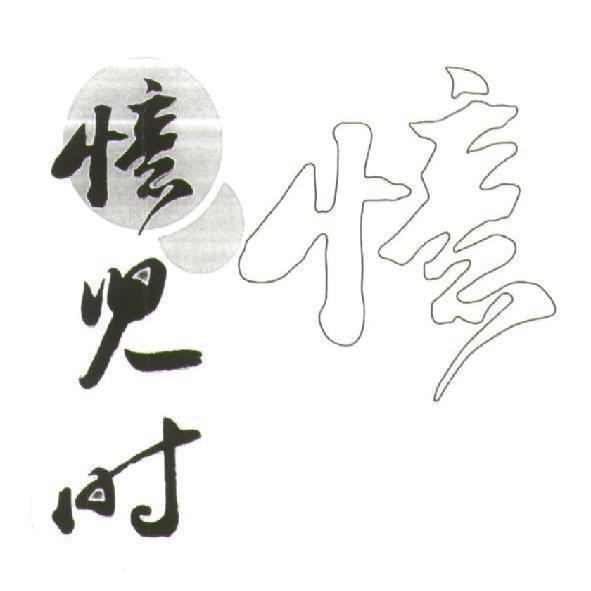 憶兒时
憶